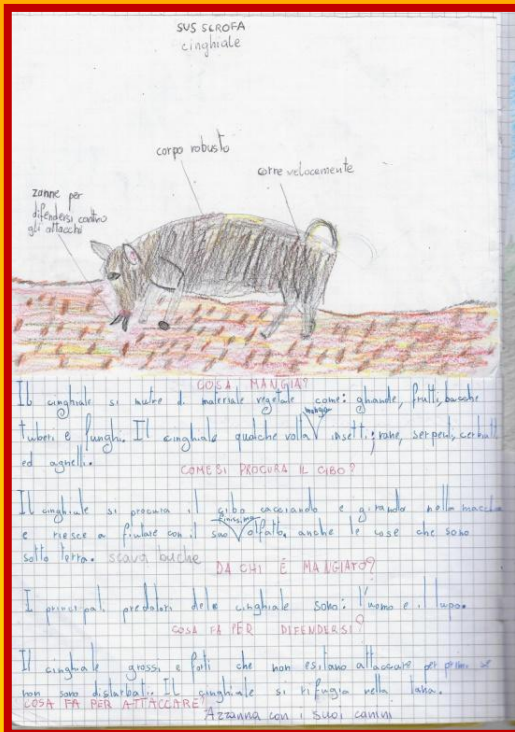 SUS SCROFA
cinghiale
corpo robusto
corre velocemente
zanne per
difendersi contro
gli attacchi
COSA MANGIA?
Il cinghiale si nutre di materiale vegetale come: ghiande, frutti, bacche
mangia
tuberi e funghi. Il cinghiale qualche volta V insetti, rane, serpenti, cerbiatti
ed agnelli.
COME SI PROCURA IL CIBO?
Il cinghiale si procura il cibo cacciando e girando nella macchia
finissimo
e riesce a fiutare con il suo V olfatto, anche le cose che sono
sotto terra. scava buche
DA CHI È MANGIATO?
I principali predatori del cinghiale sono: l'uomo e il lupo.
COSA FA PER DIFENDERSI?
Il cinghiale grossi e forti che non esitano attaccare per primi se
non sono disturbati. Il cinghiale si rifugia nella tana.
COSA FA PER ATTACCARE?
Azzanna con i suoi canini